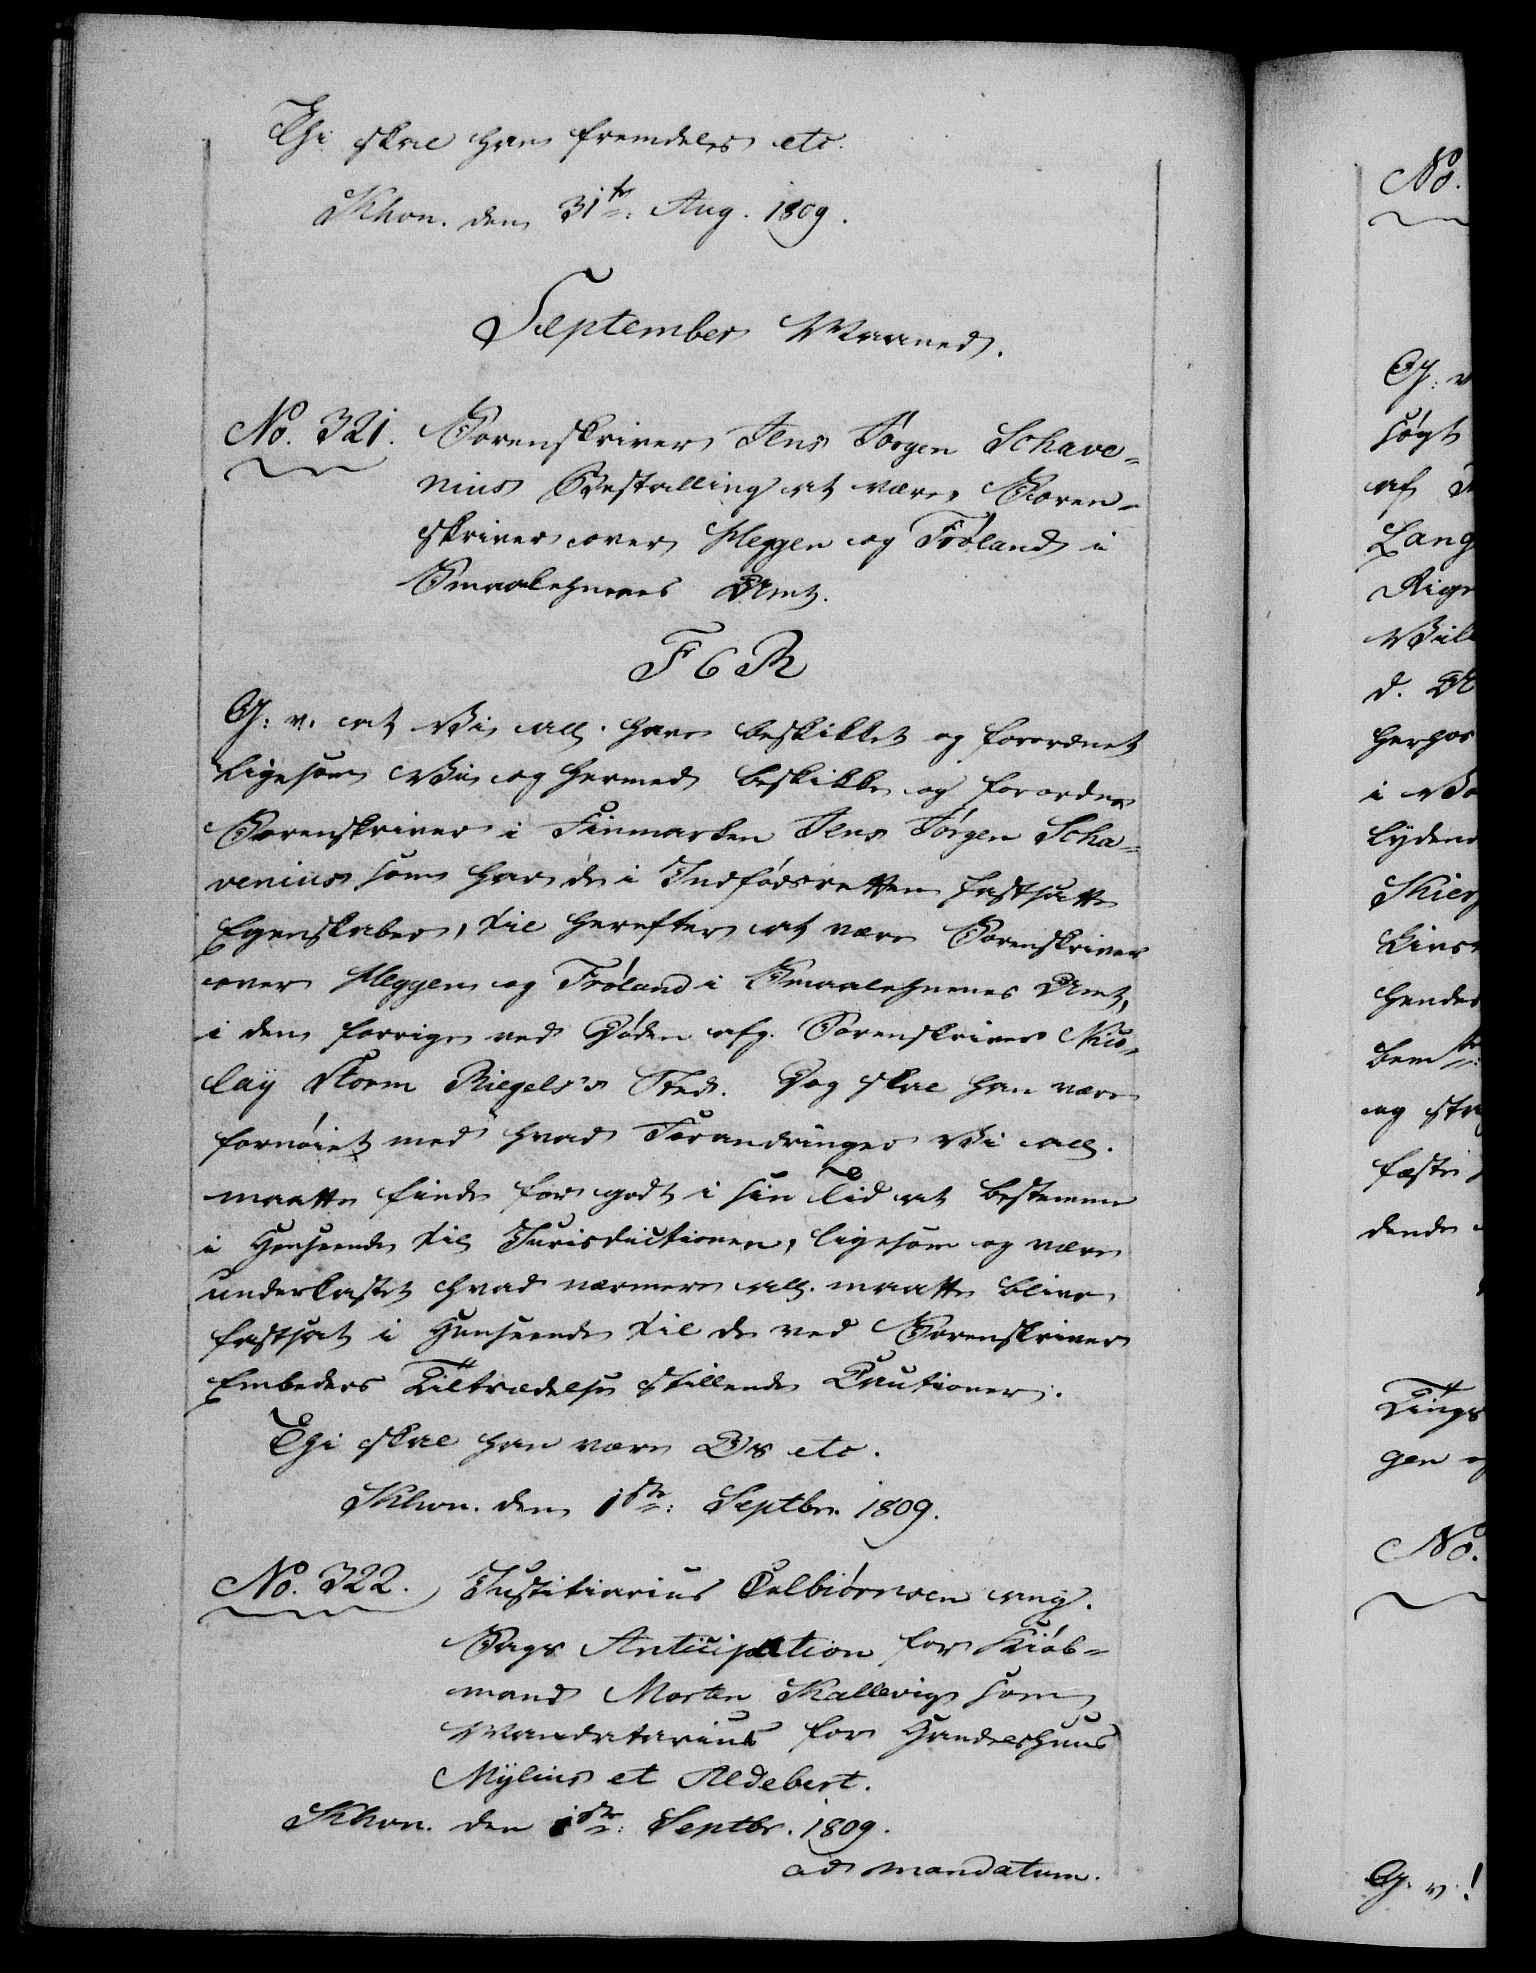 Thi skal han fremdeles etc.
Khvn. den 31te Aug. 1809.
September Maaned.
No. 321. Sorenskriver Jens Jørgen Schave-
nius Bestalling at være Soren-
skriver over Heggen og Frøland i
Smaalehnenes Amt.
F 6 R
G: v. at Vi all. have beskikket og forordnet
ligesom Vi og hermed beskikke og forordne
Sorenskriver i Finmarken Jens Jørgen Scha-
venius som har de i Indfødsretten fastsatte
Egenskaber, til herefter at være Sorenskriver
over Heggen og Frøland i Smaalehnenes Amt,
i den forrige ved Døden afg. Sorenskriver Nico-
lay Storm Riegels's Sted. Dog skal han være
fornøiet med hvad Forandringer Vi all.
maatte finde for godt i sin Tid at bestemme
i Henseende til Jurisdictionen, ligesom og være
underkastet hvad nærmere all. maatte blive
fastsat i Henseende til de ved Sorenskriver
Embeders Tiltrædelse stillende Cautioner.
Thi skal han være Os etc.
Khvn. den 1ste Septbr. 1809.
No. 322. Justitiarius Colbiørnsen ang.
Sags Anticipation for Kiøb-
mand Morten Kallevig som
Mandatarius for Handelshuus
Mylius et Aldebert.
Khvn. den 1ste Septbr. 1809.
ad mandatum.
No.
G: v
søgt
af
Lang
Rigs
d.
i
lydend
Kier
Livs
hendes
bem
og
dende
Tings
gen
No.
G. v!